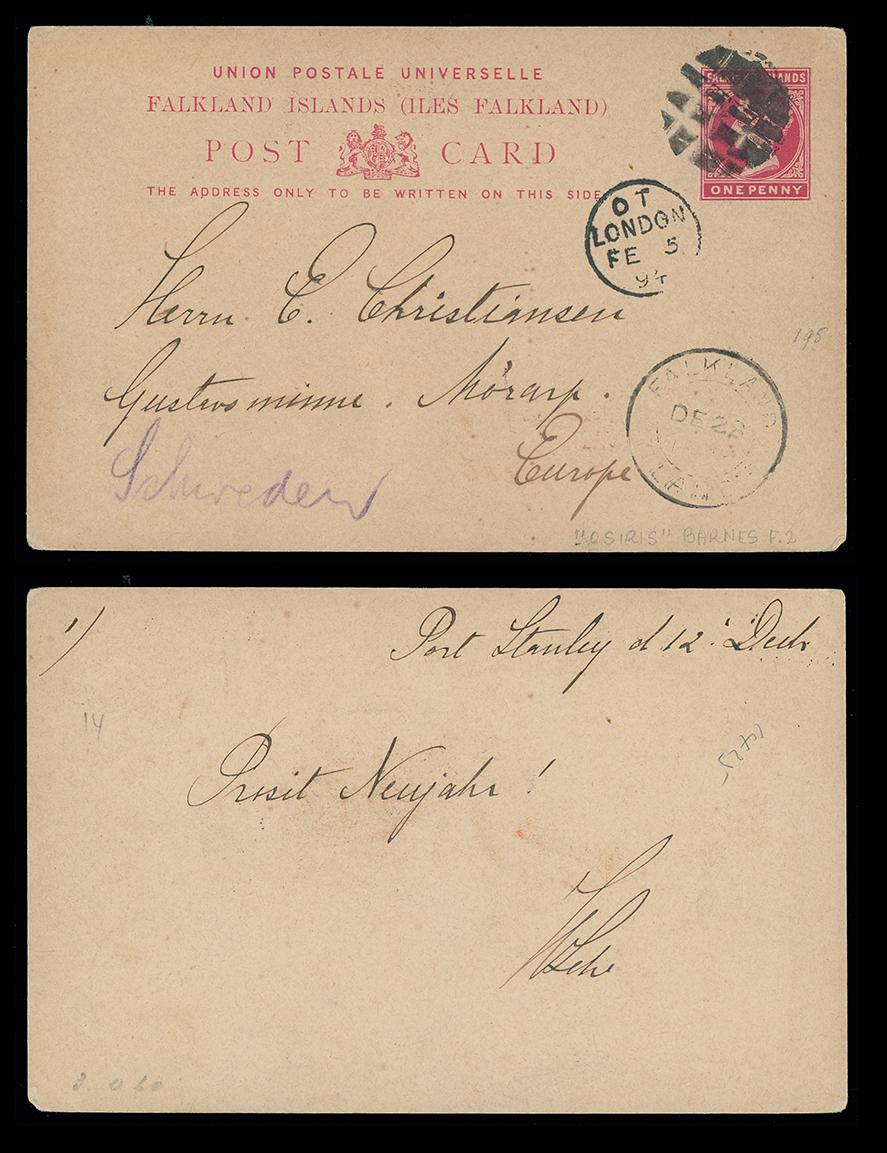 UNION POSTALE UNIVERSELLE
FALKLAND ISLANDS (ILES FALKLAND)
POST CARD
THE ADDRESS ONLY TO BE WRITTEN ON THIS SIDE
FALKLAND ISLANDS
ONE PENNY
OT
LONDON
FE 5
94
Herrn C. Christiansen
195
Gustavsminne. Mörarp.
FALKLAND
DE 28
Europe
Schweden
"OSIRIS" BARNES F.2
1)
Port Stanley d 12. Decbr
14
Prosit Neujahr!